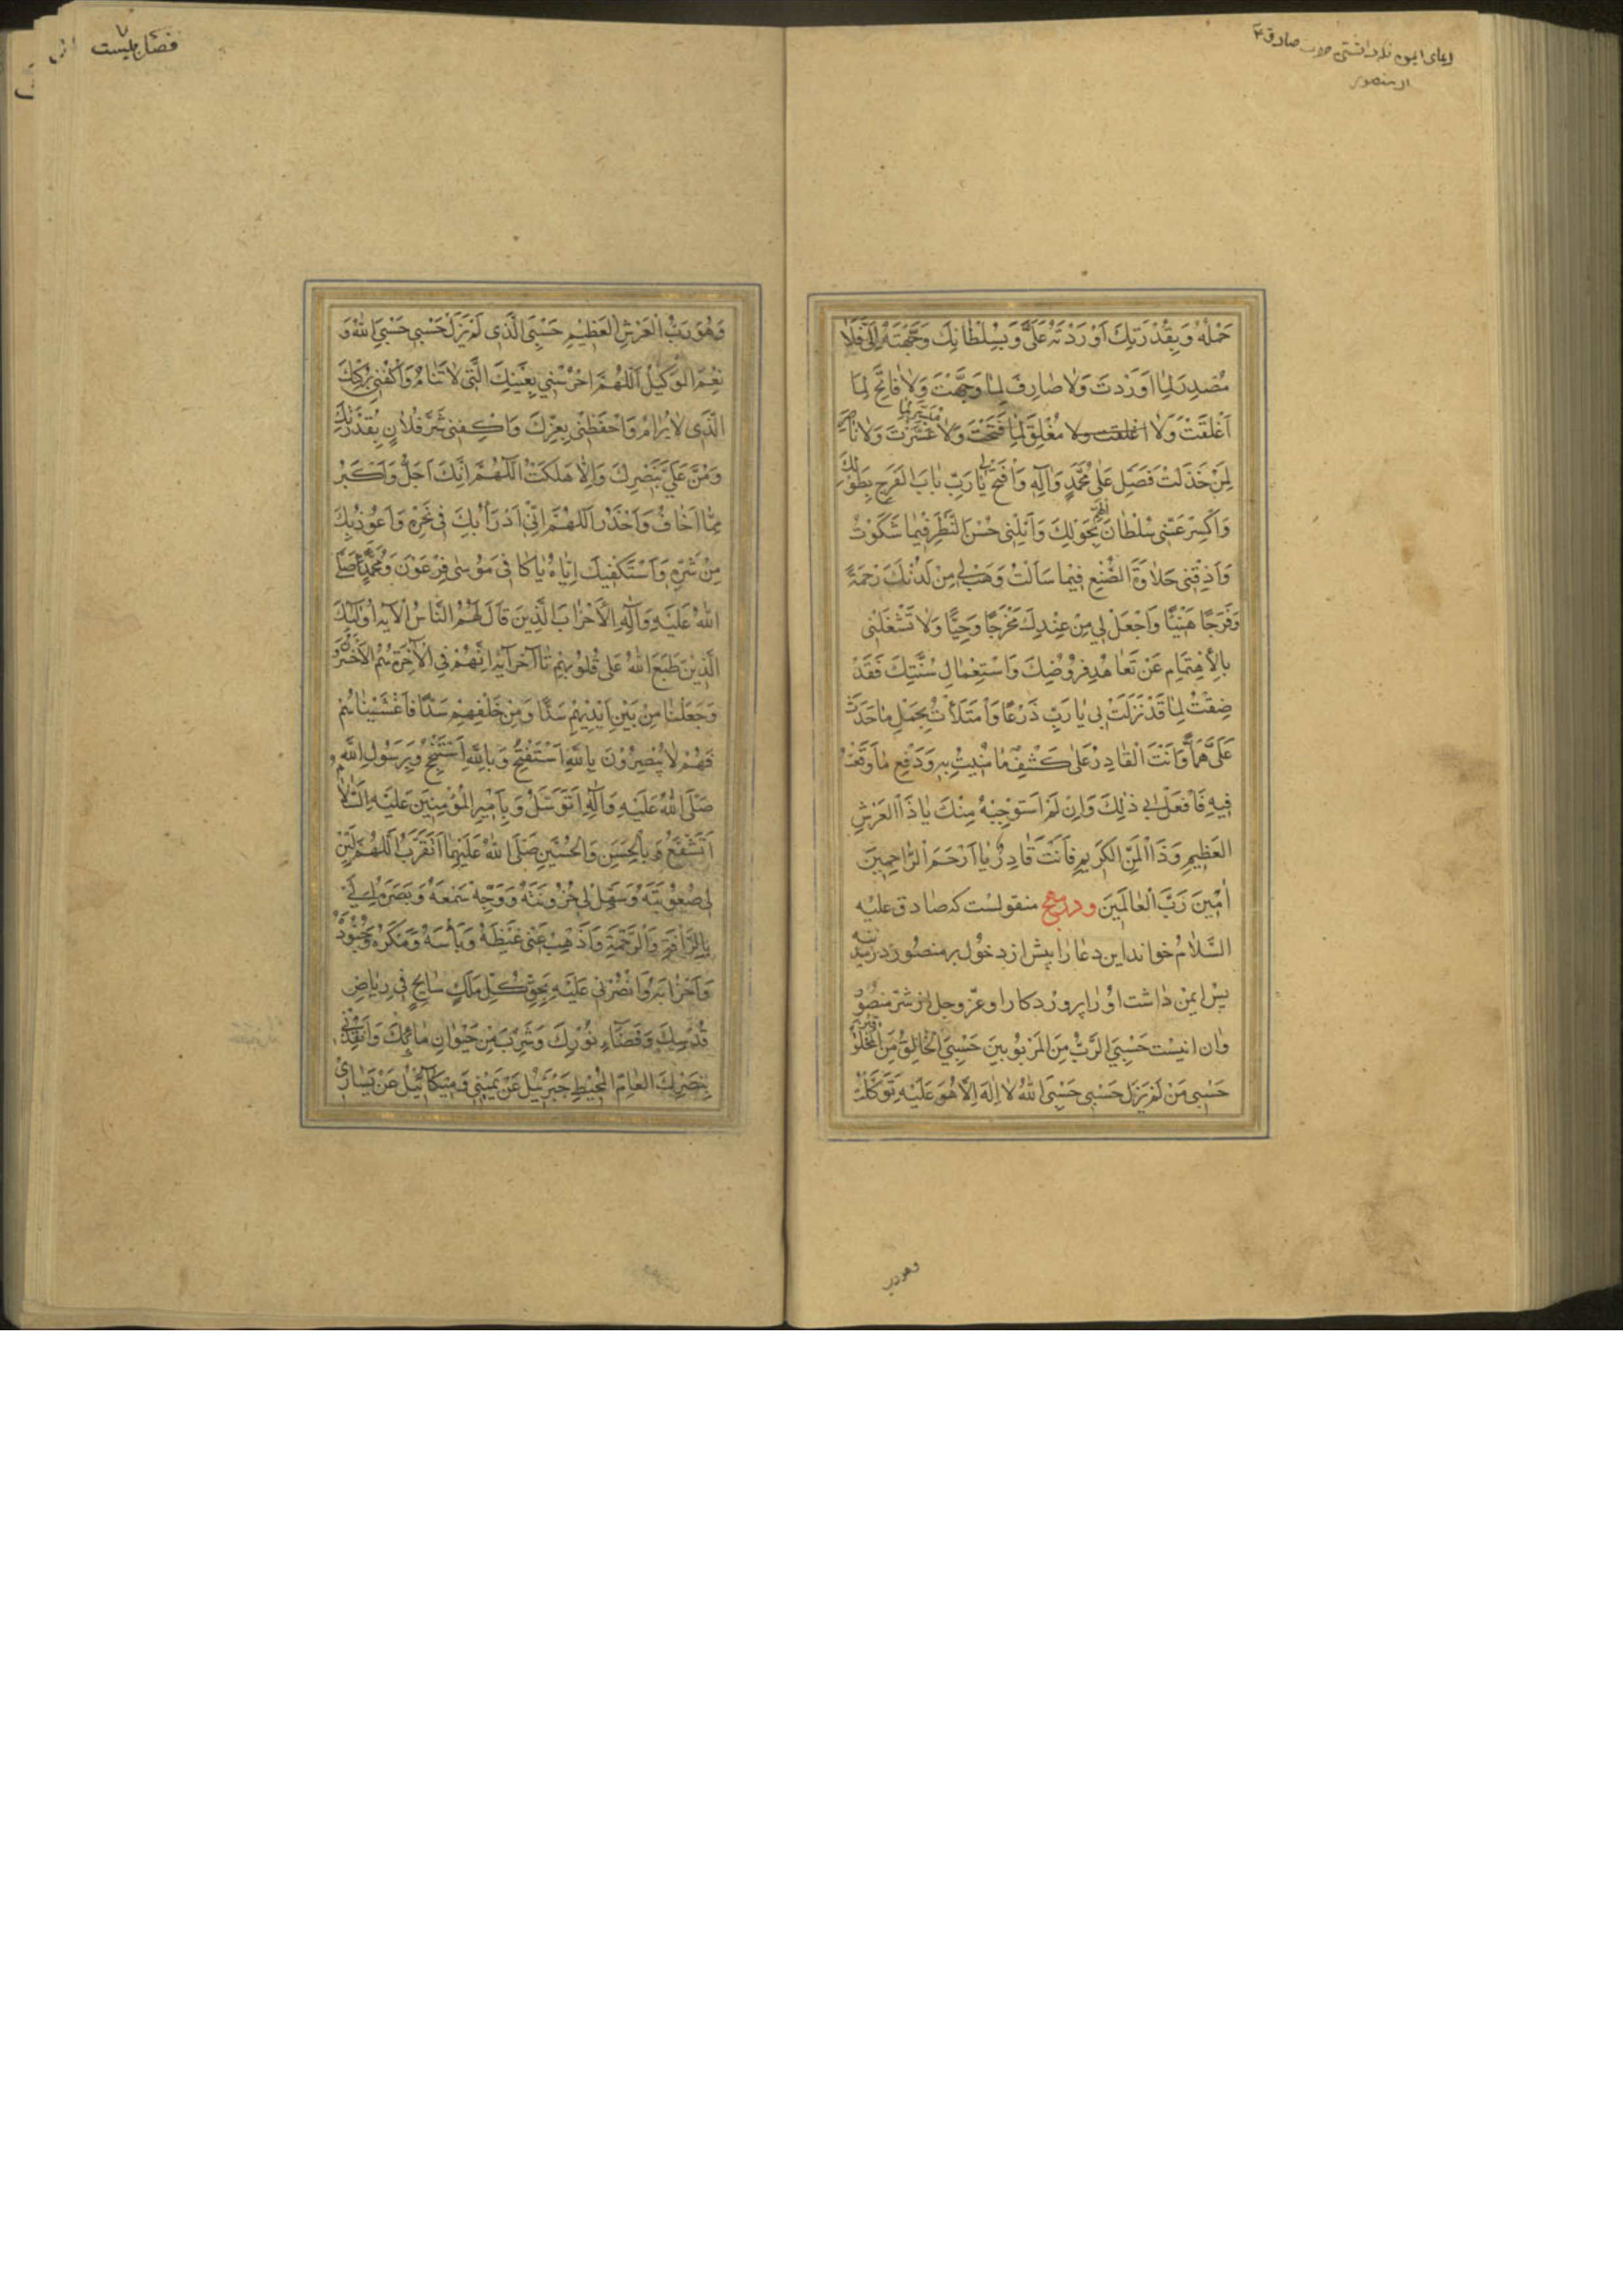 دعای ایمن
صادق ۴
از منصور
حَمْلُهُ وَبِقُدْرَتِكَ اَوْرَدْتَهُ عَلَيَّ وَبِسُلْطانِكَ وَجَّهْتَهُ اِلَيَّ فَلا
مُصْدِرَ لِمٰا اَوْرَدْتَ وَلا صٰارِفَ لِمٰا وَجَّهْتَ وَلا فٰاتِحَ لِمٰا
اَغْلَقْتَ وَلا اغلقت ولا مُغْلِقَ لِمٰا فَتَحْتَ وَلا مُيَسِّرَ لِمٰا عَسَّرْتَ وَلا نٰاصِرَ
لِمَنْ خَذَلْتَ فَصَلِّ عَلٰى مُحَمَّدٍ وَاٰلِهِ وَافْتَحْ لي يٰا رَبِّ بٰابَ الفَرَجِ بِطَوْلِكَ
وَاكْسِرْ عَنّى سُلْطٰانَ الْهَمِّ بِحَوْلِكَ وَاَنِلْنى حُسْنَ النَّظَرِ فيمٰا شَكَوْتُ
وَاَذِقْنى حَلاوَةَ الصُّنْعِ فيمٰا سَاَلْتُ وَهَبْ لي مِنْ لَدُنْكَ رَحْمَةً
وَفَرَجًا هَنيئًا وَاجْعَلْ لي مِنْ عِنْدِكَ مَخْرَجًا وَحِيًّا وَلا تَشْغَلْنى
بِالْاِهْتِمٰامِ عَنْ تَعٰاهُدِ فُرُوضِكَ وَاسْتِعْمٰالِ سُنَّتِكَ فَقَدْ
ضِقْتُ لِمٰا قَدْ نَزَلَتْ بى يٰا رَبِّ ذَرْعًا وَامْتَلَأْتُ بِحَمْلِ مٰا حَدَثَ
عَلَيَّ هَمًّا وَاَنْتَ الْقٰادِرُ عَلٰى كَشْفِ مٰا مُنيتُ بِهِ وَدَفْعِ مٰا وَقَعْتُ
فيهِ فَافْعَلْ بى ذٰلِكَ وَاِنْ لَمْ اَسْتَوْجِبْهُ مِنْكَ يٰا ذَا الْعَرْشِ
الْعَظيمِ وَذَا الْمَنِّ الْكَريمِ فَاَنْتَ قٰادِرٌ يٰا اَرْحَمَ الرّٰاحِمينَ
اٰمينَ رَبَّ الْعٰالَمينَ ودر مهج منقولست كه صٰادق عليه
السَّلام خواند اين دعٰا را پيش از دخول بر منصور در مدينه
پس ايمن دٰاشت اورٰا پروردكار او عزّوجل از شرّ منصور
وٰان اينست حَسْبِيَ الرَّبُّ مِنَ الْمَرْبُوبينَ حَسْبِيَ الْخٰالِقُ مِنَ الْمَخْلُوقينَ
حَسْبى مَنْ لَمْ يَزَلْ حَسْبى حَسْبِيَ اللهُ لا اِلٰهَ اِلّا هُوَ عَلَيْهِ تَوَكَّلْتُ
وهو رب
فضل بيست
وَهُوَ رَبُّ الْعَرْشِ الْعَظيمِ حَسْبِيَ الَّذى لَمْ يَزَلْ حَسْبى حَسْبِيَ اللهُ وَ
نِعْمَ الْوَكيلُ اَللّٰهُمَّ احْرُسْنى بِعَيْنِكَ الَّتى لا تَنٰامُ وَاكْنُفْنى بِرُكْنِكَ
الَّذى لا يُرٰامُ وَاحْفَظْنى بِعِزِّكَ وَاكْفِنى شَرَّ فُلانٍ بِقُدْرَتِكَ
وَمُنَّ عَلَيَّ بِنَصْرِكَ وَاِلّا هَلَكْتُ اَللّٰهُمَّ اِنَّكَ اَجَلُّ وَاَكْبَرُ
مِمّٰا اَخٰافُ وَاَحْذَرُ اَللّٰهُمَّ اِنّى اَدْرَأُ بِكَ فى نَحْرِهِ وَاَعُوذُ بِكَ
مِنْ شَرِّهِ وَاَسْتَكْفيكَ اِيّٰاهُ يٰا كٰافى مُوسٰى فِرْعَوْنَ وَمُحَمَّدٍ صَلَّى
اللهُ عَلَيْهِ وَاٰلِهِ الْاَحْزٰابَ الَّذينَ قٰالَ لَهُمُ النّٰاسُ الآيه اُولٰئِكَ
الَّذينَ طَبَعَ اللهُ عَلٰى قُلُوبِهِمْ تٰا آخر آيه اِنَّهُمْ فِي الْآخِرَةِ هُمُ الْاَخْسَرُونَ
وَجَعَلْنٰا مِنْ بَيْنِ اَيْديهِمْ سَدًّا وَمِنْ خَلْفِهِمْ سَدًّا فَاَغْشَيْنٰاهُمْ
فَهُمْ لا يُبْصِرُونَ بِاللهِ اَسْتَفْتِحُ وَبِاللهِ اَسْتَنْجِحُ وَبِرَسُولِ اللهِ
صَلَّى اللهُ عَلَيْهِ وَاٰلِهِ اَتَوَسَّلُ وَبِاَميرِ الْمُؤْمِنينَ عَلَيْهِ السَّلام
اَتَشَفَّعُ وَبِالْحَسَنِ وَالْحُسَيْنِ صَلَّى اللهُ عَلَيْهِمٰا اَتَقَرَّبُ اَللّٰهُمَّ لَيِّنْ
لى صُعُوبَتَهُ وَسَهِّلْ لى حُزُونَتَهُ وَوَجِّهْ سَمْعَهُ وَبَصَرَهُ اِلَيَّ
بِالرَّأْفَةِ وَالرَّحْمَةِ وَاَذْهِبْ عَنّى غَيْظَهُ وَبَأْسَهُ وَمَكْرَهُ وَجُنُودَهُ
وَاَحْزٰابَهُ وَانْصُرْنى عَلَيْهِ بِحَقِّ كُلِّ مَلَكٍ سٰايِحٍ فى رِيٰاضِ
قُدْسِكَ وَفَضٰاءِ نُورِكَ وَشَرِبَ مِنْ حَيَوٰانِ مٰائِكَ وَاَنْقِذْنى
بِنَصْرِكَ الْعٰامِّ الْمُحيطِ جَبْرَئيلُ عَنْ يَمينى وَميكٰائيلُ عَنْ يَسٰارى